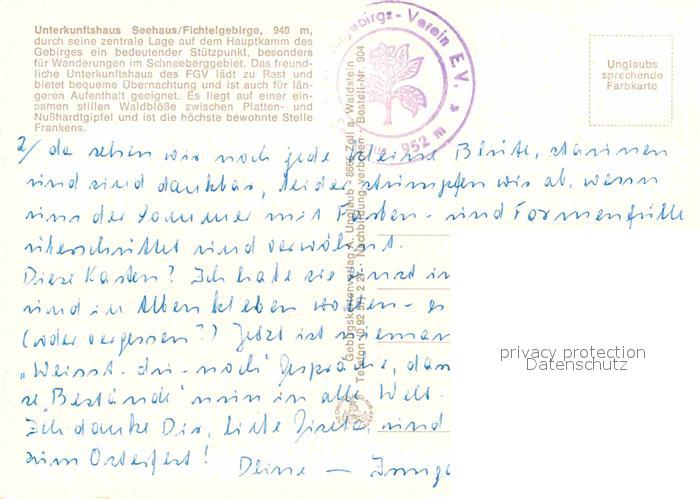 Unterkunftshaus Seehaus/Fichtelgebirge, 940 m,
durch seine zentrale Lage auf dem Hauptkamm des
Gebirges ein bedeutender Stützpunkt, besonders
für Wanderungen im Schneeberggebiet. Das freund-
liche Unterkunftshaus des FGV lädt zu Rast und
bietet bequeme Übernachtung und ist auch für län-
geren Aufenthalt geeignet. Es liegt auf einer ein-
samen stillen Waldblöße zwischen Platten- und
Nußhardtgipfel und ist die höchste bewohnte Stelle
Frankens.
gebirgs-Verein E.V.
952 m
Unglaubs
sprechende
Farbkarte
Gebirgskartenverlag A. Unglaub - 8665 Zell a. Waldstein
Nachbildung verboten - Bestell-Nr. 904
2/ da sehen wir noch jede kleine Blüte, staunen
und sind dankbar, leider stumpfen wir ab, wenn
uns der Sommer mit Farben- und Formenfülle
überschüttet und verwöhnt.
Diese Karten? Ich habe sie
und in Alben kleben wollten-
(oder vergessen?) Jetzt ist
"Weisst-du-noch" Gespräche,
"Bestände" nun in alle Welt.
Ich danke Dir, liebe Gisela, und
zum Osterfest!
Deine —
privacy protection
Datenschutz